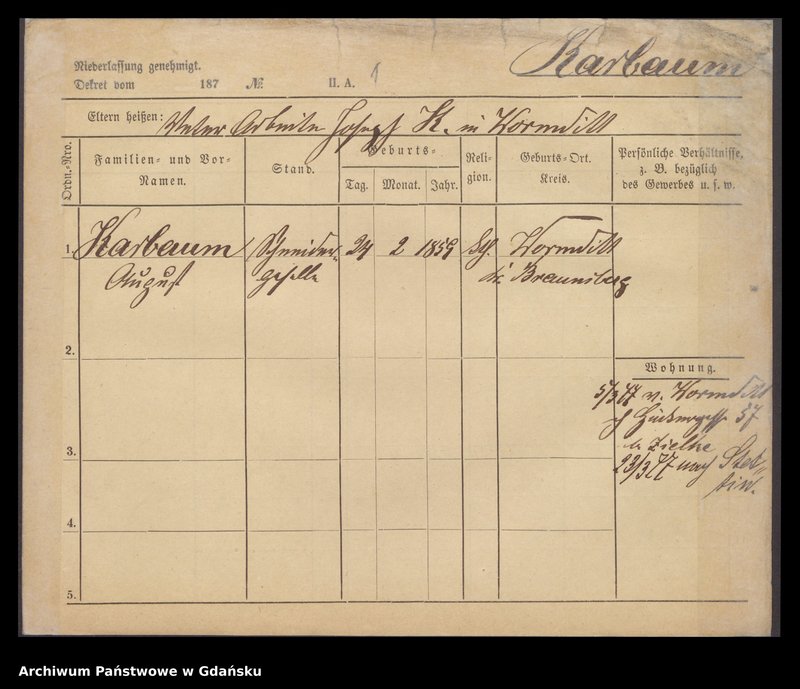 Karbaum
Niederlassung genehmigt.
Dekret vom 187 № II. A. 1
Eltern heißen: Vater Arbeiter Joseph K. in Wormditt
Ordn.-Nro.
Familien- und Vor-
Namen.
Stand.
Geburts-
Tag. Monat. Jahr.
Reli-
gion.
Geburts-Ort.
Kreis.
Persönliche Verhältnisse,
z. B. bezüglich
des Gewerbes u. s. w.
1. Karbaum Schneider- 24 2 1859 kth. Wormditt
August geselle Kr. Braunsberg
2.
Wohnung.
5/3 77 v. Wormditt
57
b. Zielke
3.
23/3 77 nach Stet-
tin.
4.
5.
Archiwum Państwowe w Gdańsku